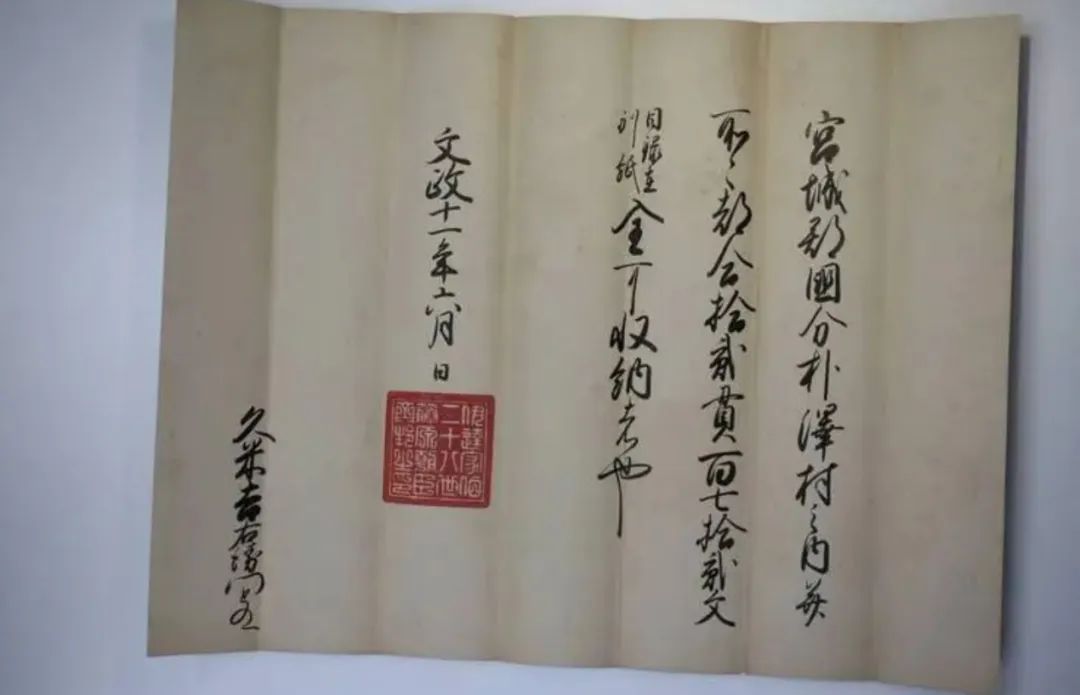 宮城郡國分朴澤村之内并
所々都合拾貳貫百七拾貳文
目録在
別紙
全可収納者也
文政十一年六月 日
伊達家
二十八世
藤原朝臣
齊邦之印
久米吉右衛門とのへ